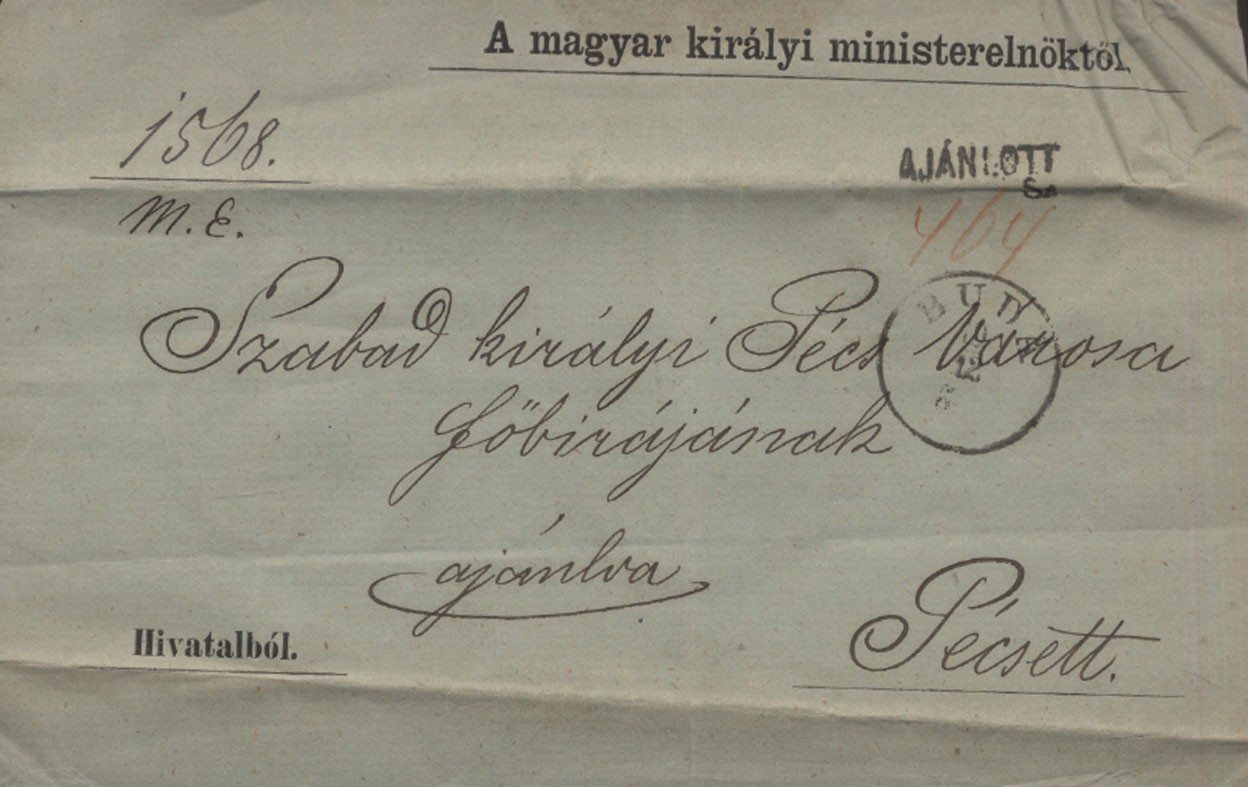 A magyar királyi ministerelnöktől.
1568.
M. E.
AJÁNLOTT
464
BUDA
Szabad királyi Pécs Városa
főbirájának
ajánlva
Hivatalból.
Pécsett.